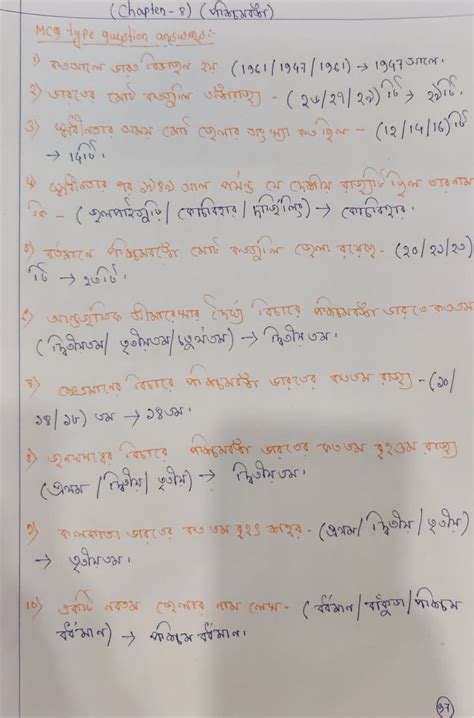 (Chapter-8) (পশ্চিমবঙ্গ)
MCQ type question answers:-
১) কতসালে ভারত বিভাজন হয় (1961/1947/1951) → 1947 সালে।
২) ভারতের মোট কতগুলি অঙ্গরাজ্য - (২৬/২৭/২৯)টি → ২৯টি।
৩) স্বাধীনতার সময় মোট জেলার সংখ্যা কত ছিল - (12/14/16)টি
→ 14টি।
৪) স্বাধীনতার পর ১৯৪৯ সাল পর্যন্ত যে দেশীয় রাজ্যটি ছিল তার নাম
কি - (জলপাইগুড়ি/কোচবিহার/দার্জিলিং) → কোচবিহার।
৫) বর্তমানে পশ্চিমবঙ্গে মোট কতগুলি জেলা রয়েছে - (২০/২১/২৩)
টি → ২৩টি।
৬) আন্তর্জাতিক সীমারেখার দৈর্ঘ্য বিচারে পশ্চিমবঙ্গ ভারতে কততম
(দ্বিতীয়তম/তৃতীয়তম/চতুর্থতম) → দ্বিতীয়তম।
৭) ক্ষেত্রমানের বিচারে পশ্চিমবঙ্গ ভারতের কততম রাজ্য - (১০/
১৪/১৮) তম → ১৪তম।
৮) জনসংখ্যার বিচারে পশ্চিমবঙ্গ ভারতের কততম বৃহত্তম রাজ্য
(প্রথম/দ্বিতীয়/তৃতীয়) → দ্বিতীয়তম।
৯) কলকাতা ভারতের কত তম বৃহৎ শহর - (প্রথম/দ্বিতীয়/তৃতীয়)
→ তৃতীয়তম।
১০) একটি নবতম জেলার নাম লেখ - (বর্ধমান/বাঁকুড়া/পশ্চিম
বর্ধমান) → পশ্চিম বর্ধমান।